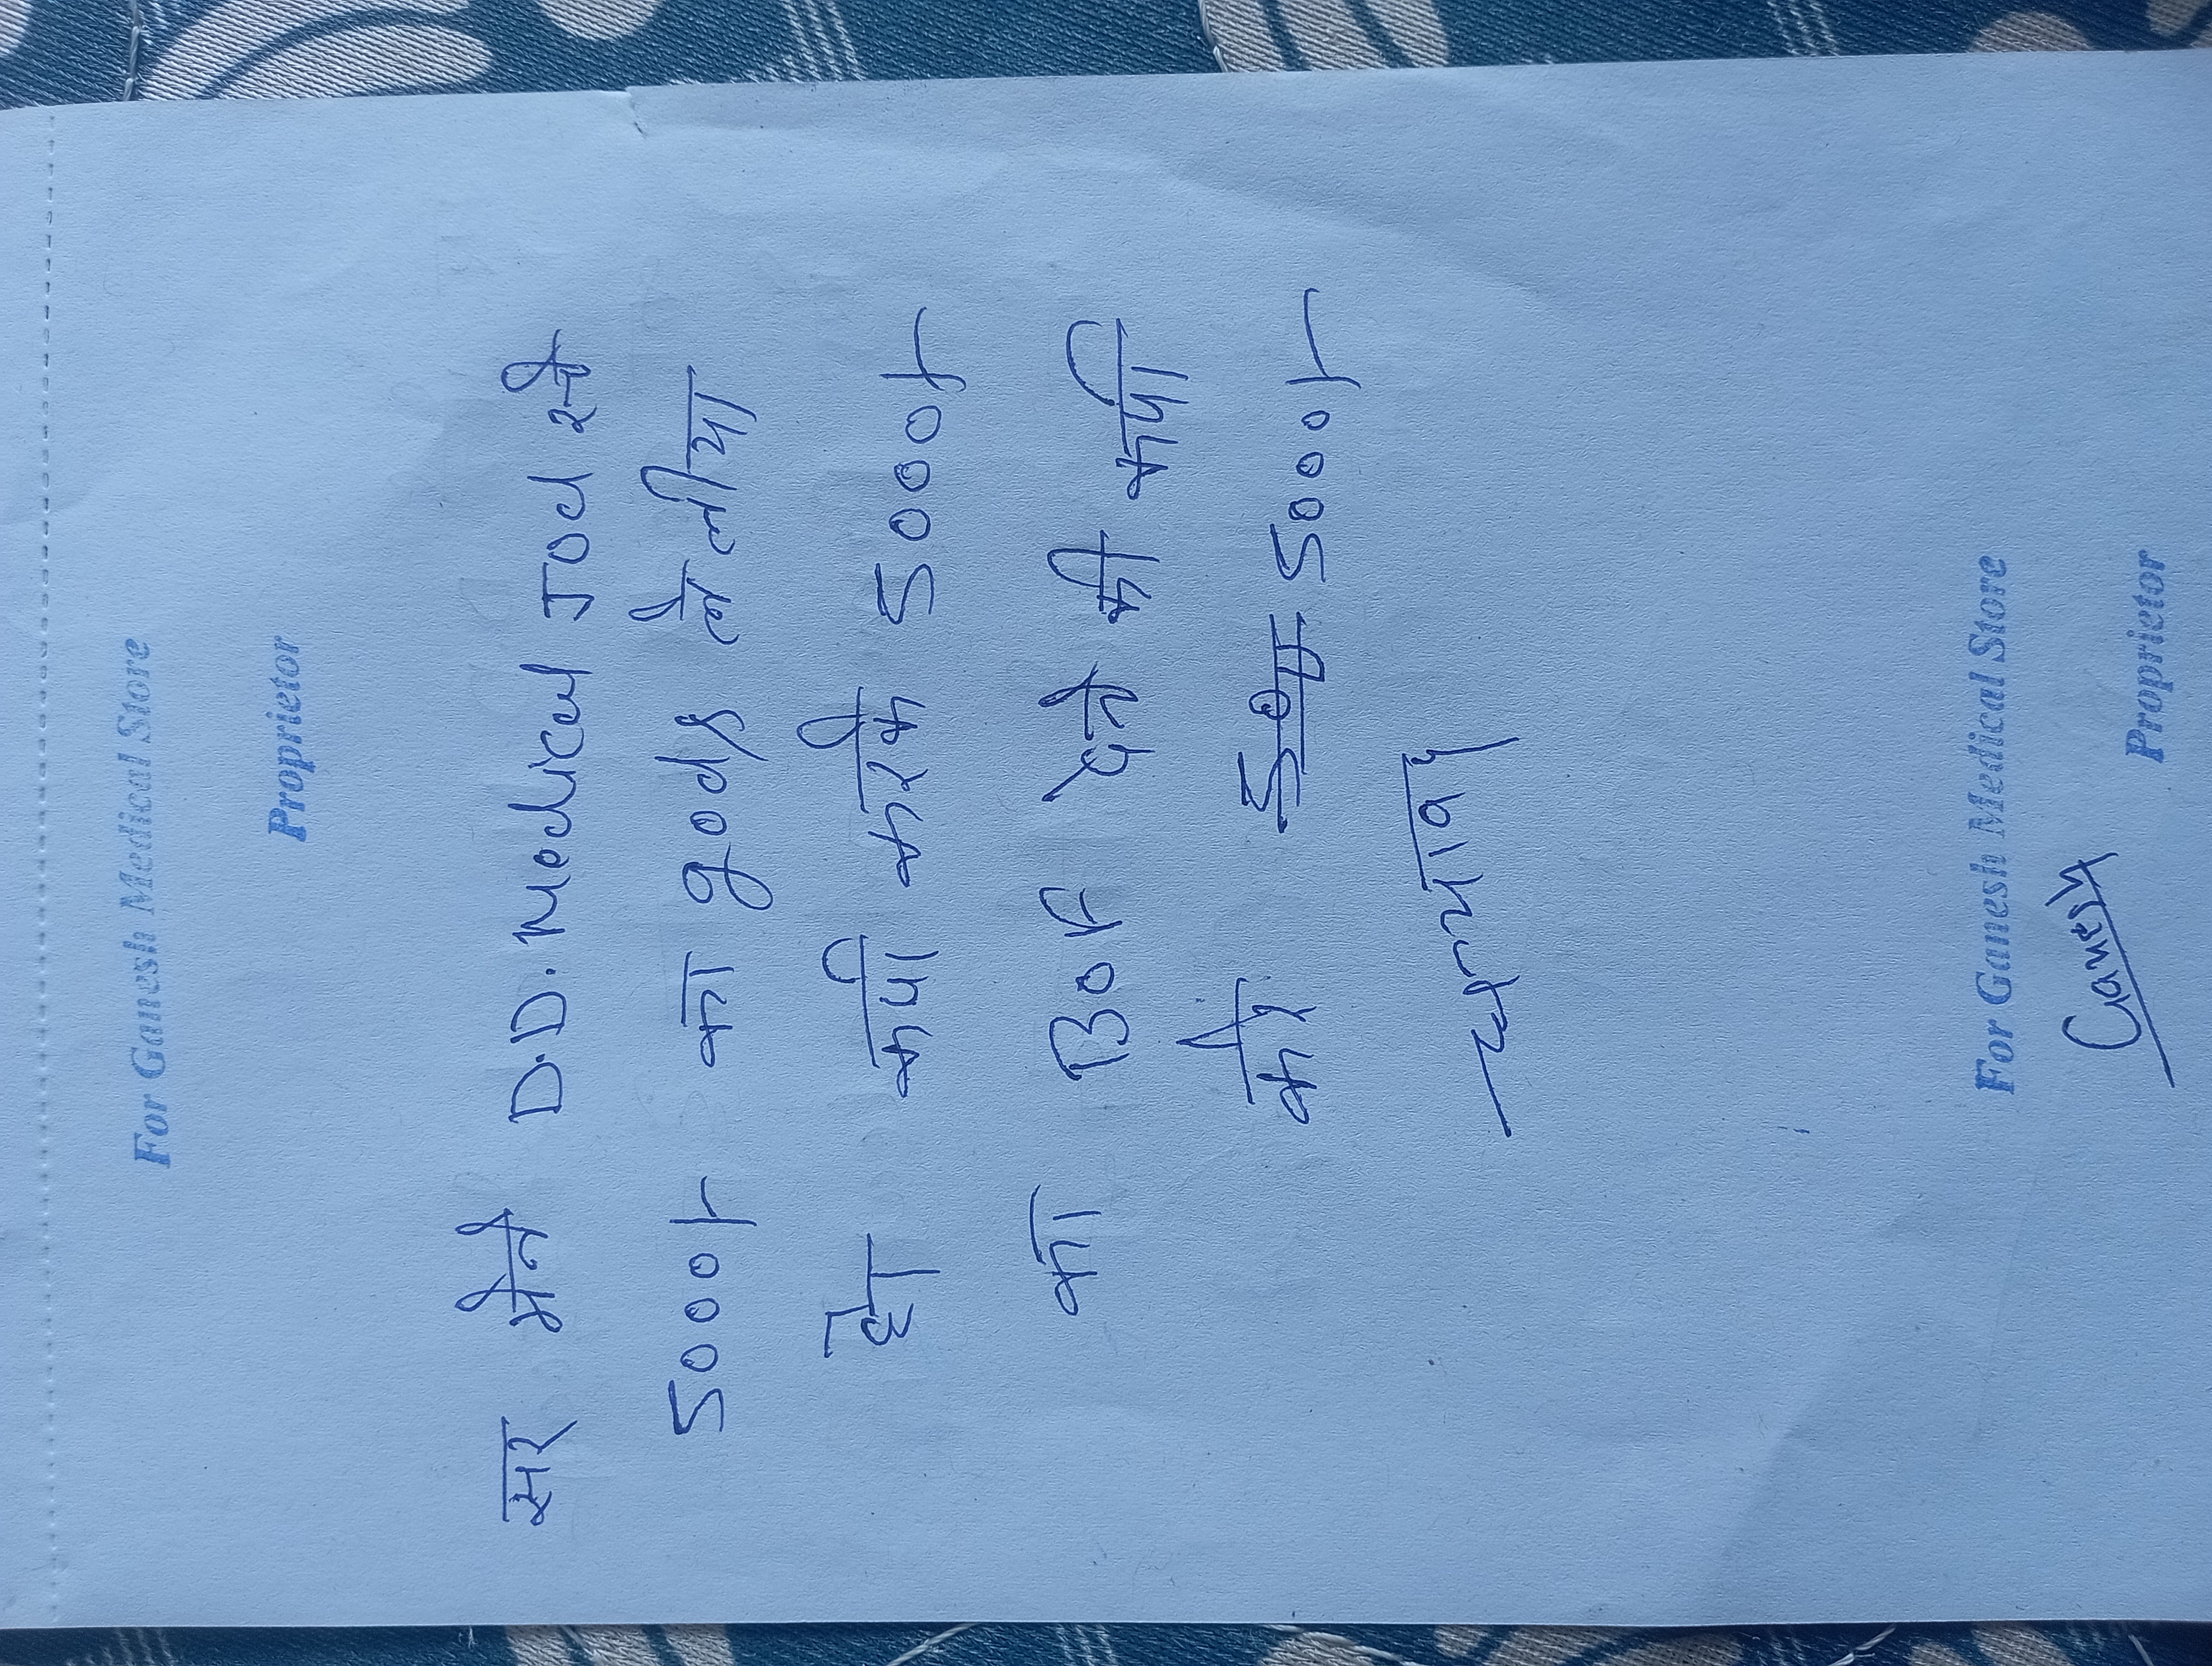 For Ganesh Medical Store
Proprietor
सर मैने D.D. Medical Jod से
5000/- का goods ले लीया
है। कृपी करके 5000/-
का Bok देने की कृपा
करे 5000/-
धन्यवाद
For Ganesh Medical Store
Ganesh
Proprietor